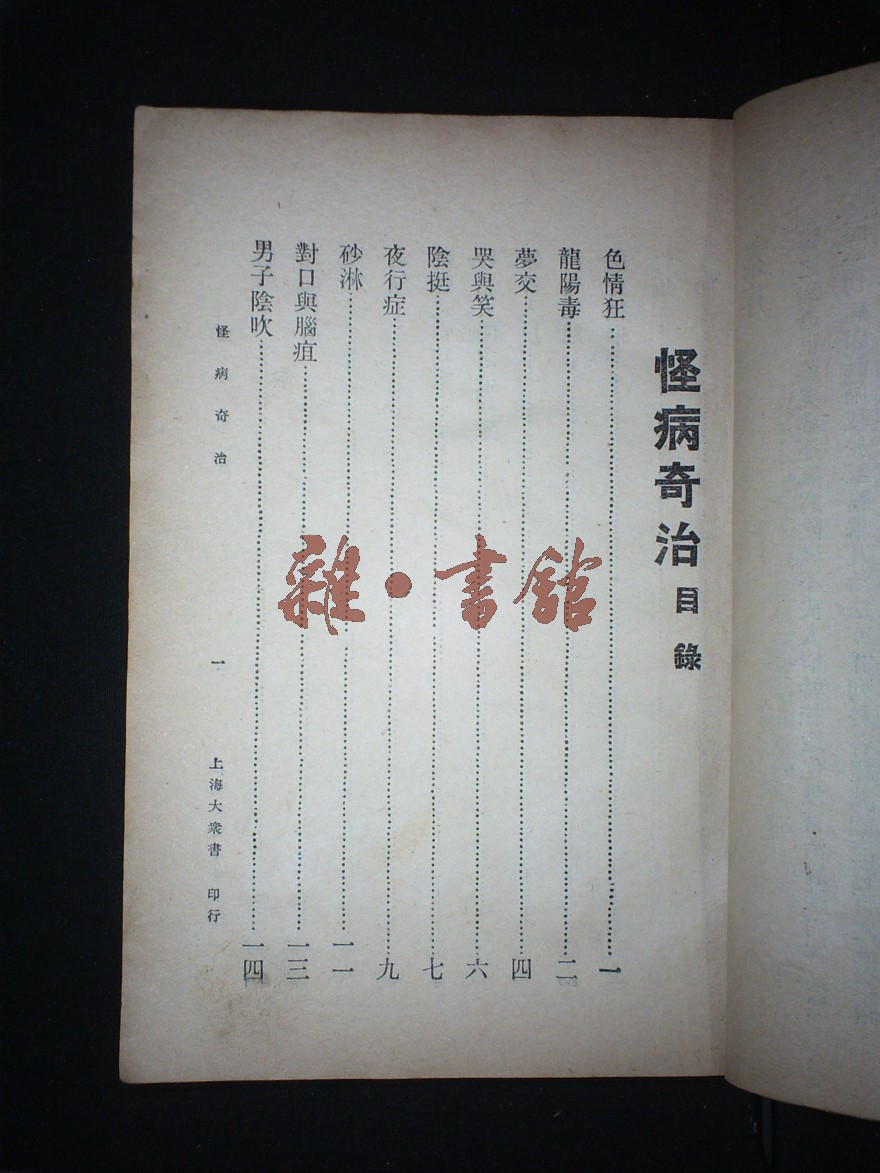 怪病奇治目錄
色情狂……一
龍陽毒……二
夢交……四
哭與笑……六
陰挺……七
夜行症……九
砂淋……一一
對口與腦疽……一三
男子陰吹……一四
怪病奇治
一
上海大衆書 印行
雜·書館